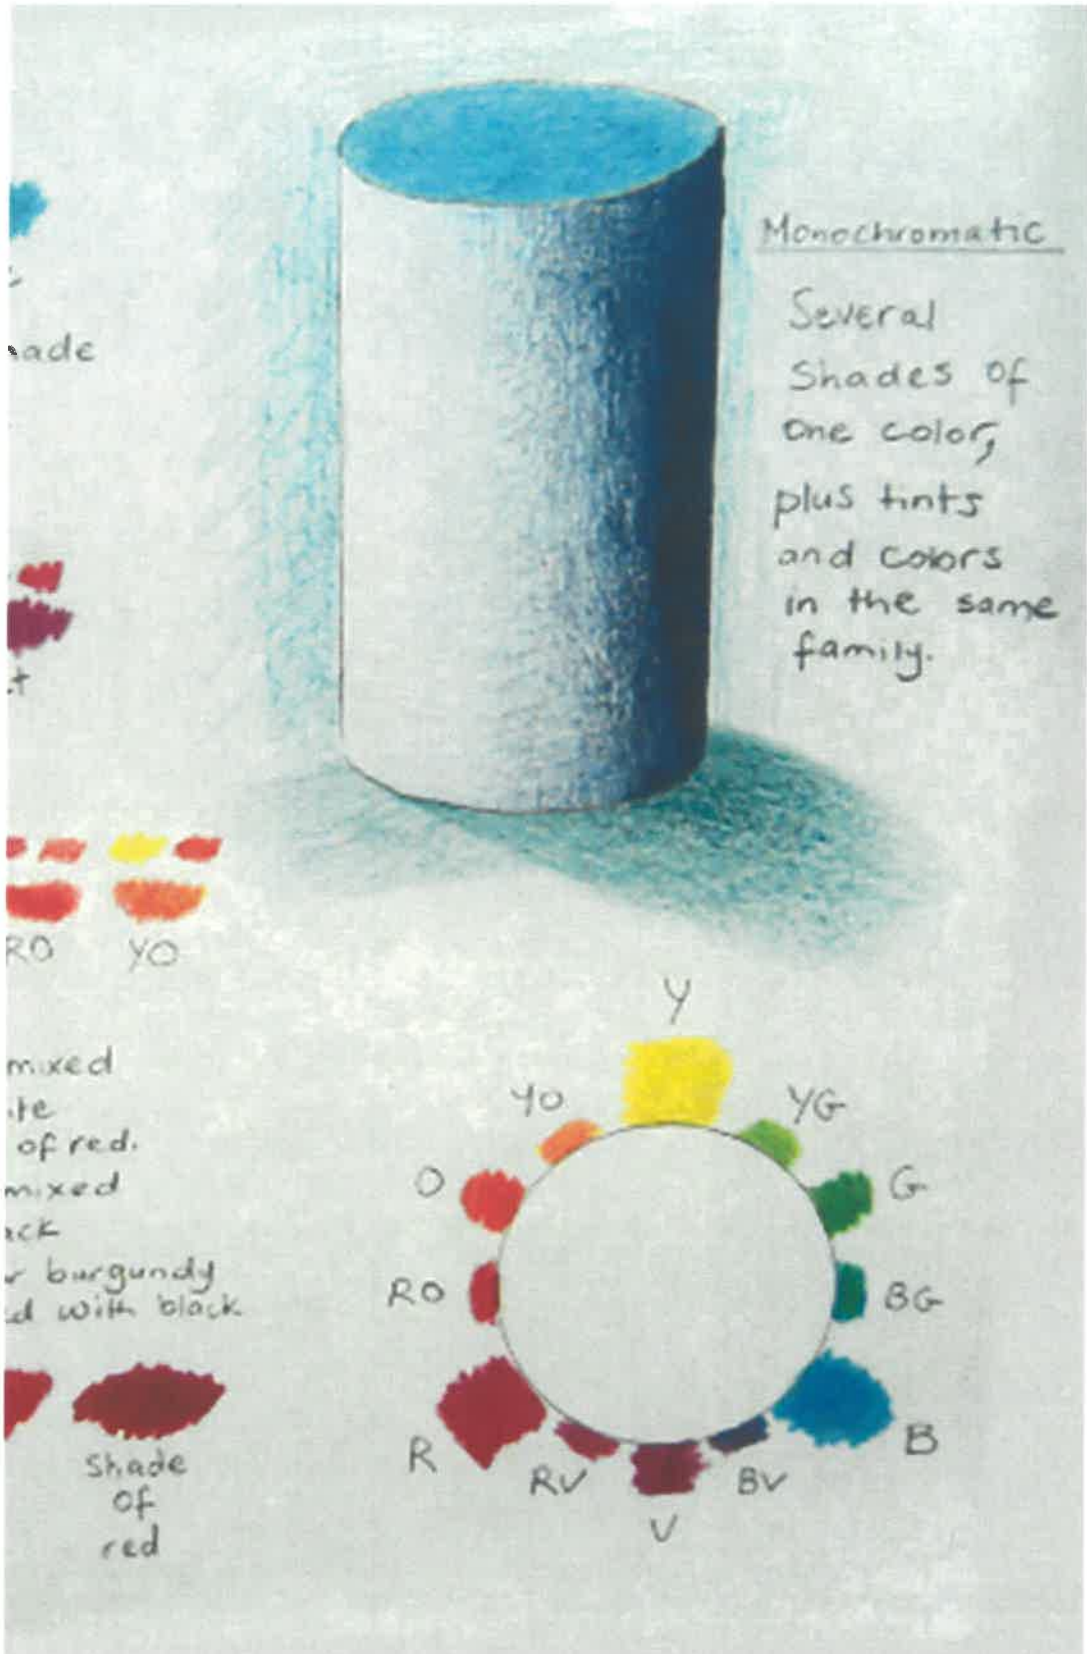 Monochromatic
Several
Shades of
one color,
plus tints
and colors
in the same
family.
RO YO
mixed
of red.
mixed
burgundy
with black
Shade
of
red
Y
YO YG
O G
RO BG
R B
RV BV
V